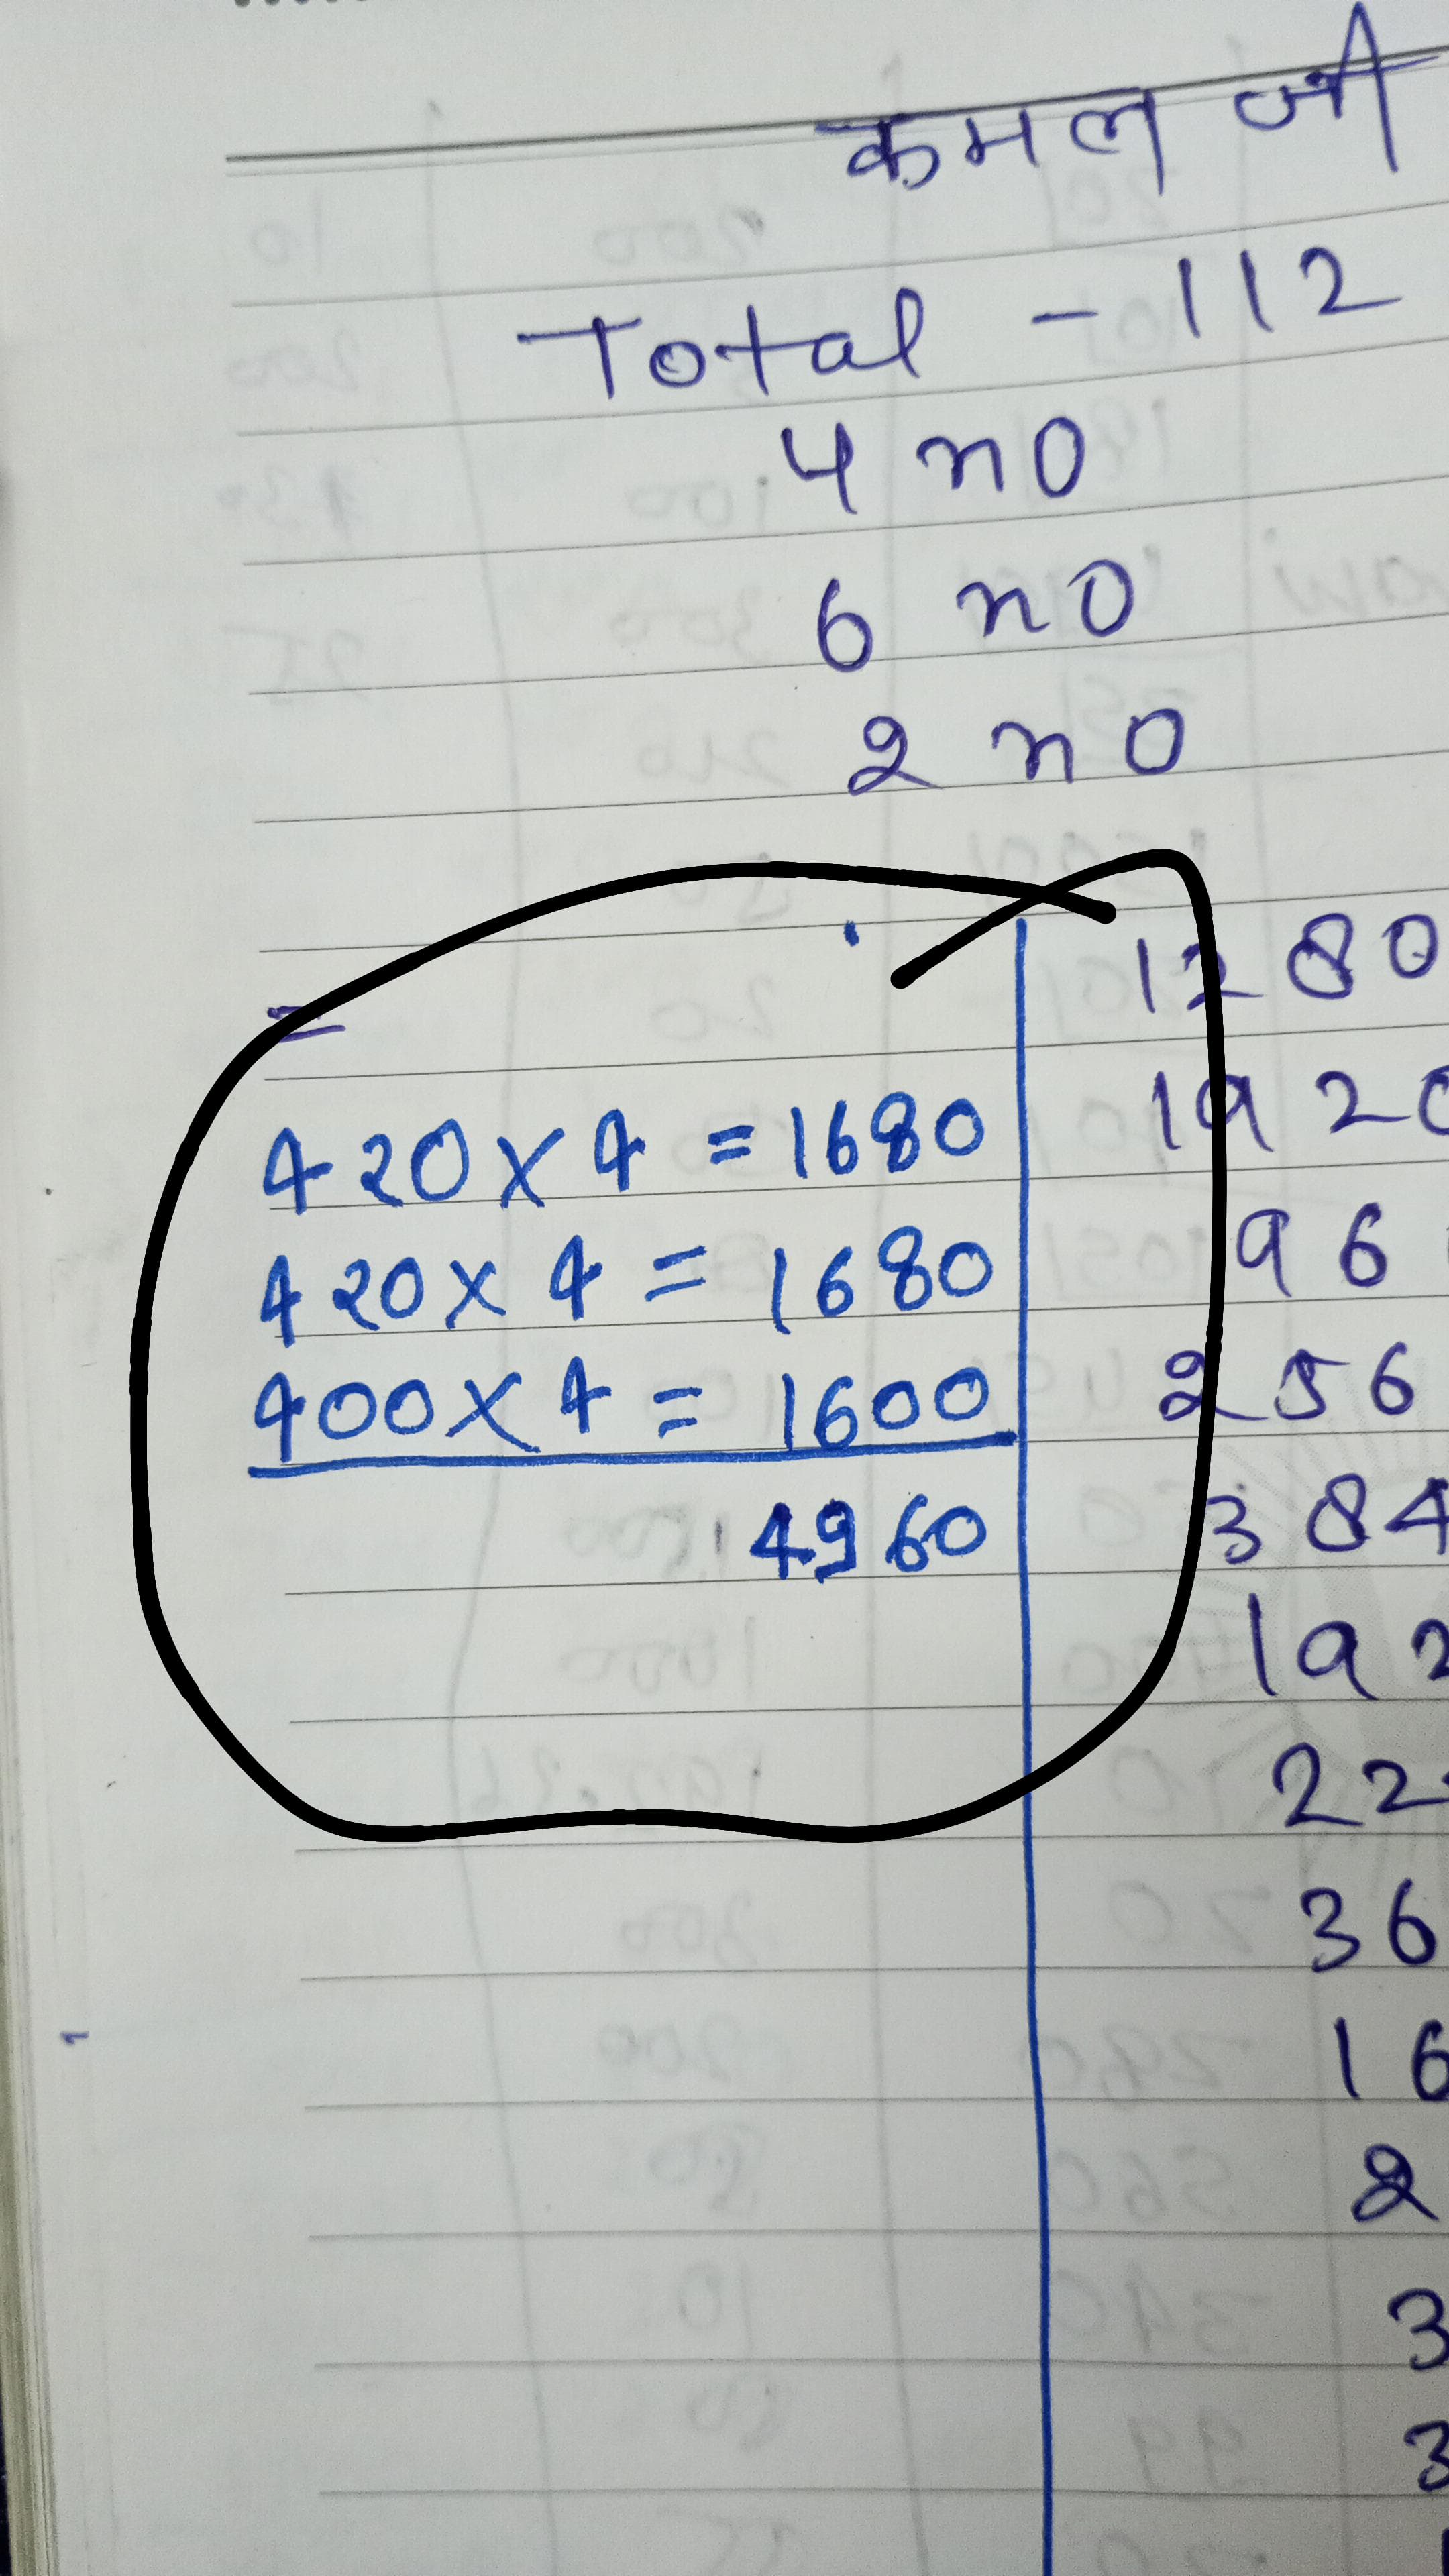 कमल जी
Total - 112
4 no
6 no
2 no
=
420 x 4 = 1680
420 x 4 = 1680
400 x 4 = 1600
4960
1280
1920
96
256
384
192
22
36
16
2
3
3